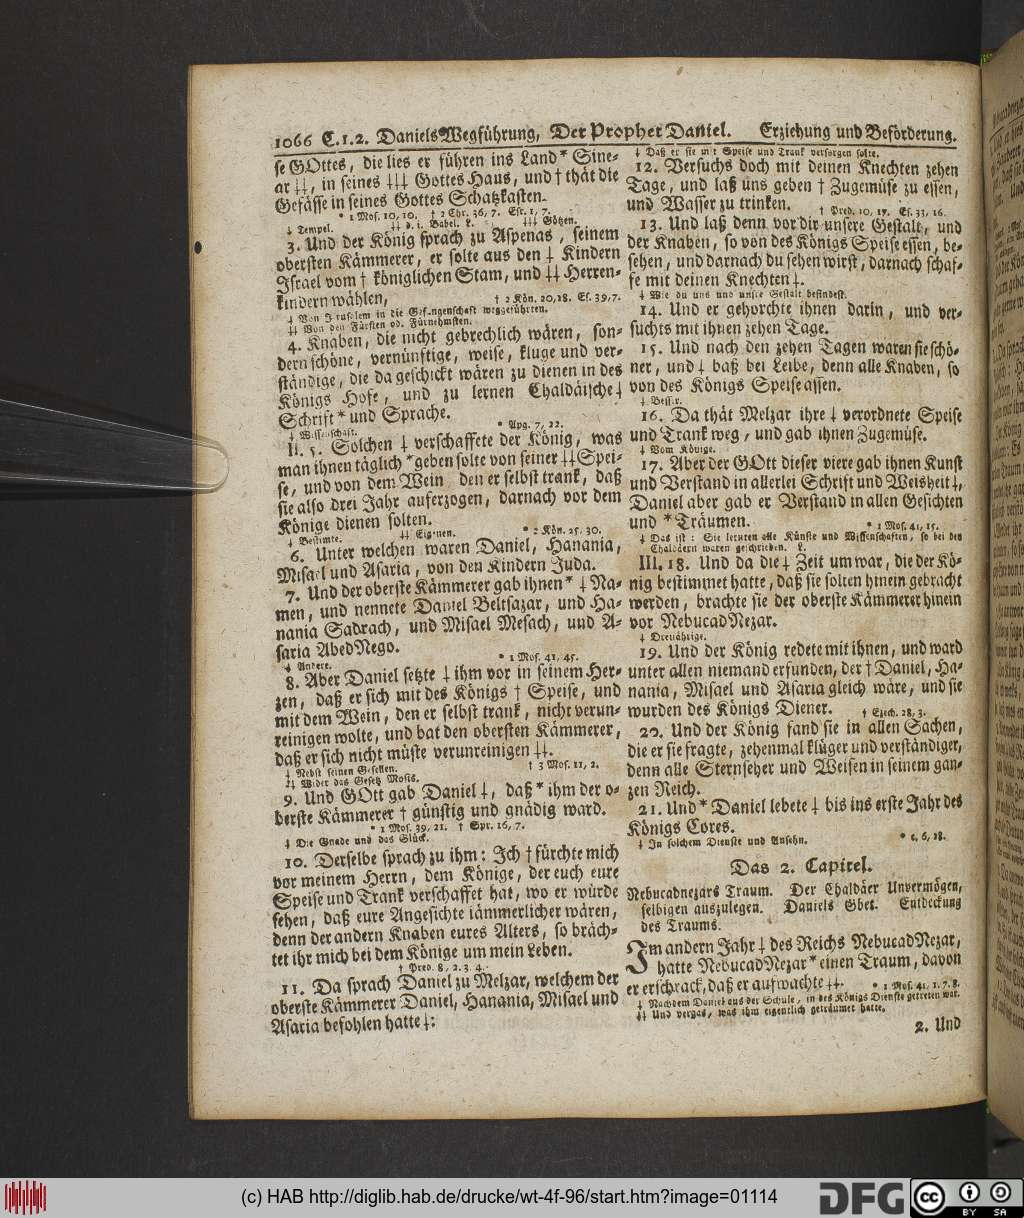 1066 C.1.2. Daniels Wegführung, Der Prophet Daniel. Erziehung und Beförderung.
se GOttes, die lies er führen ins Land* Sine-
ar ‡‡, in seines ‡‡‡ Gottes Haus, und † thät die
Gefässe in seines Gottes Schatzkasten.
* 1 Mos. 10, 10. † 2 Chr. 36, 7. Esr. 1, 7.
‡ Tempel. ‡‡ d. i. Babel. L. ‡‡‡ Götzen.
3. Und der König sprach zu Aspenas, seinem
obersten Kämmerer, er solte aus den ‡ Kindern
Israel vom † königlichen Stam, und ‡‡ Herren-
kindern wählen,
† 2 Kön. 20, 18. Es. 39, 7.
‡ Von Jerusalem in die Gefangenschaft weggeführten.
‡‡ Von den Fürsten od. Fürnehmsten.
4. Knaben, die nicht gebrechlich wären, son-
dern schöne, vernünftige, weise, kluge und ver-
ständige, die da geschickt wären zu dienen in des
Königs Hofe, und zu lernen Chaldäische ‡
Schrift * und Sprache.
* Apg. 7, 22.
‡ Wissenschaft.
II. 5. Solchen ‡ verschaffete der König, was
man ihnen täglich * geben solte von seiner ‡‡ Spei-
se, und von dem Wein den er selbst trank, daß
sie also drei Jahr auferzogen, darnach vor dem
Könige dienen solten.
‡ Bestimte. ‡‡ Eigenen. * 2 Kön. 25, 30.
6. Unter welchen waren Daniel, Hanania,
Misael und Asaria, von den Kindern Juda.
7. Und der oberste Kämmerer gab ihnen * ‡ Na-
men, und nennete Daniel Beltsazar, und Ha-
nania Sadrach, und Misael Mesach, und A-
saria AbedNego.
‡ Andere. * 1 Mos. 41, 45.
8. Aber Daniel setzte ‡ ihm vor in seinem Her-
zen, daß er sich mit des Königs † Speise, und
mit dem Wein, den er selbst trank, nicht verun-
reinigen wolte, und bat den obersten Kämmerer,
daß er sich nicht müste verunreinigen ‡‡.
‡ Nebst seinen Gesellen. † 3 Mos. 11, 2.
‡‡ Wider das Gesetz Mosis.
9. Und GOtt gab Daniel ‡, daß * ihm der o-
berste Kämmerer † günstig und gnädig ward.
* 1 Mos. 39, 21. † Spr. 16, 7.
‡ Die Gnade und das Glück.
10. Derselbe sprach zu ihm: Ich † fürchte mich
vor meinem Herrn, dem Könige, der euch eure
Speise und Trank verschaffet hat, wo er würde
sehen, daß eure Angesichte iämmerlicher wären,
denn der andern Knaben eures Alters, so bräch-
tet ihr mich bei dem Könige um mein Leben.
† Pred. 8, 2. 3. 4.
11. Da sprach Daniel zu Melzar, welchem der
oberste Kämmerer Daniel, Hanania, Misael und
Asaria befohlen hatte ‡:
‡ Daß er sie mit Speise und Trank versorgen solte.
12. Versuchs doch mit deinen Knechten zehen
Tage, und laß uns geben † Zugemüse zu essen,
und Wasser zu trinken.
† Pred. 10, 17. Es. 33, 16.
13. Und laß denn vor dir unsere Gestalt, und
der Knaben, so von des Königs Speise essen, be-
sehen, und darnach du sehen wirst, darnach schaf-
fe mit deinen Knechten ‡.
‡ Wie du uns und unsre Gestalt befindest.
14. Und er gehorchte ihnen darin, und ver-
suchts mit ihnen zehen Tage.
15. Und nach den zehen Tagen waren sie schö-
ner, und ‡ baß bei Leibe, denn alle Knaben, so
von des Königs Speise assen.
‡ Besser.
16. Da thät Melzar ihre ‡ verordnete Speise
und Trank weg, und gab ihnen Zugemüse.
‡ Vom Könige.
17. Aber der GOtt dieser viere gab ihnen Kunst
und Verstand in allerlei Schrift und Weisheit ‡,
Daniel aber gab er Verstand in allen Gesichten
und * Träumen.
* 1 Mos. 41, 15.
‡ Das ist: Sie lernten alle Künste und Wissenschaften, so bei den
Chaldäern waren geschrieben. L.
III. 18. Und da die ‡ Zeit um war, die der Kö-
nig bestimmet hatte, daß sie solten hinein gebracht
werden, brachte sie der oberste Kämmerer hinein
vor NebucadNezar.
‡ Dreijährige.
19. Und der König redete mit ihnen, und ward
unter allen niemand erfunden, der † Daniel, Ha-
nania, Misael und Asaria gleich wäre, und sie
wurden des Königs Diener.
† Ezech. 28, 3.
20. Und der König fand sie in allen Sachen,
die er sie fragte, zehenmal klüger und verständiger,
denn alle Sternseher und Weisen in seinem gan-
zen Reich.
21. Und * Daniel lebete ‡ bis ins erste Jahr des
Königs Cores.
‡ In solchem Dienste und Ansehn. * c. 6, 28.
Das 2. Capitel.
Nebucadnezars Traum. Der Chaldäer Unvermögen,
selbigen auszulegen. Daniels Gbet. Entdeckung
des Traums.
Im andern Jahr ‡ des Reichs NebucadNezar,
hatte NebucadNezar * einen Traum, davon
er erschrack, daß er aufwachte ‡‡.
* 1 Mos. 41, 1. 7. 8.
‡ Nachdem Daniel aus der Schule, in des Königs Dienste getreten war.
‡‡ Und vergas, was ihm eigentlich geträumet hatte.
2. Und
(c) HAB http://diglib.hab.de/drucke/wt-4f-96/start.htm?image=01114
DFG
cc
BY SA